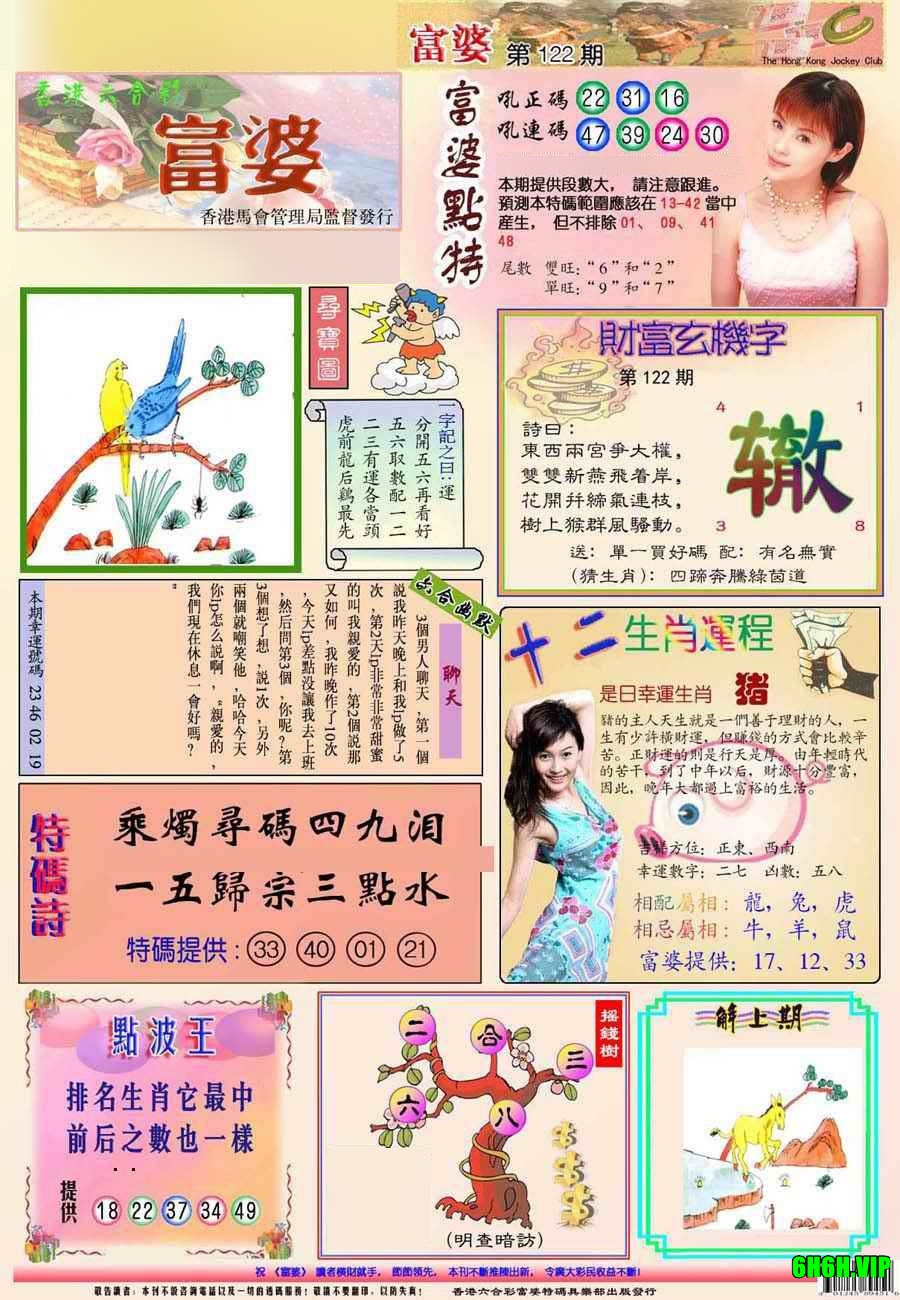 富婆 第 122 期
The Hong Kong Jockey Club
香港六合彩
富婆
香港馬會管理局監督發行
富婆點特
吼正碼 22 31 16
吼連碼 47 39 24 30
本期提供段數大， 請注意跟進。
預測本特碼範圍應該在 13-42 當中
産生， 但不排除 01、 09、 41
48
尾數 雙旺：“6”和“2”
單旺：“9”和“7”
尋寶圖
一字記之曰：運
分開五六再看好
五六取數配一二
二三有運各當頭
虎前龍后鷄最先
財富玄機字
第 122 期
4 1
轍
3 8
詩曰：
東西兩宮爭大權，
雙雙新燕飛着岸，
花開幷締氣連枝，
樹上猴群風騷動。
送： 單一買好碼 配： 有名無實
(猜生肖)： 四蹄奔騰綠茵道
六合幽默
聊天
3個男人聊天，第一個
説我昨天晚上和我lp做了5
次，第2天lp非常非常甜蜜
的叫我親愛的，第2個説那
又如何，我昨晚作了10次
，今天lp差點没讓我去上班
，然后問第3個，你呢？第
3個想了想，説1次，另外
兩個就嘲笑他，哈哈今天
你lp怎么説啊，“親愛的，
我們現在休息一會好嗎？
”
本期幸運號碼 23 46 02 19
十二生肖運程
是日幸運生肖 猪
豬的主人天生就是一們善于理財的人，一
生有少許橫財運，但賺錢的方式會比較辛
苦。正財運的則是行天是厚。由年輕時代
的苦干，到了中年以后，財源十分豐富，
因此，晚年大都過上富裕的生活。
吉祥方位：正東、西南
幸運數字：二七 凶數：五八
相配屬相：龍，兔，虎
相忌屬相：牛，羊，鼠
富婆提供：17、12、33
特碼詩
乘燭尋碼四九泪
一五歸宗三點水
特碼提供：33 40 01 21
點波王
排名生肖它最中
前后之數也一樣
提供 18 22 37 34 49
搖錢樹
二 合 三
六 八
(明查暗訪)
解上期
祝 《富婆》 讀者橫財就手， 節節領先， 本刊不斷推陳出新， 令廣大彩民收益不斷！
敬告讀者：本刊不設咨詢電話以及一切的透碼服務！敬請不要翻印，以防失真！ 香港六合彩富婆特碼具樂部出版發行
6H6H.VIP